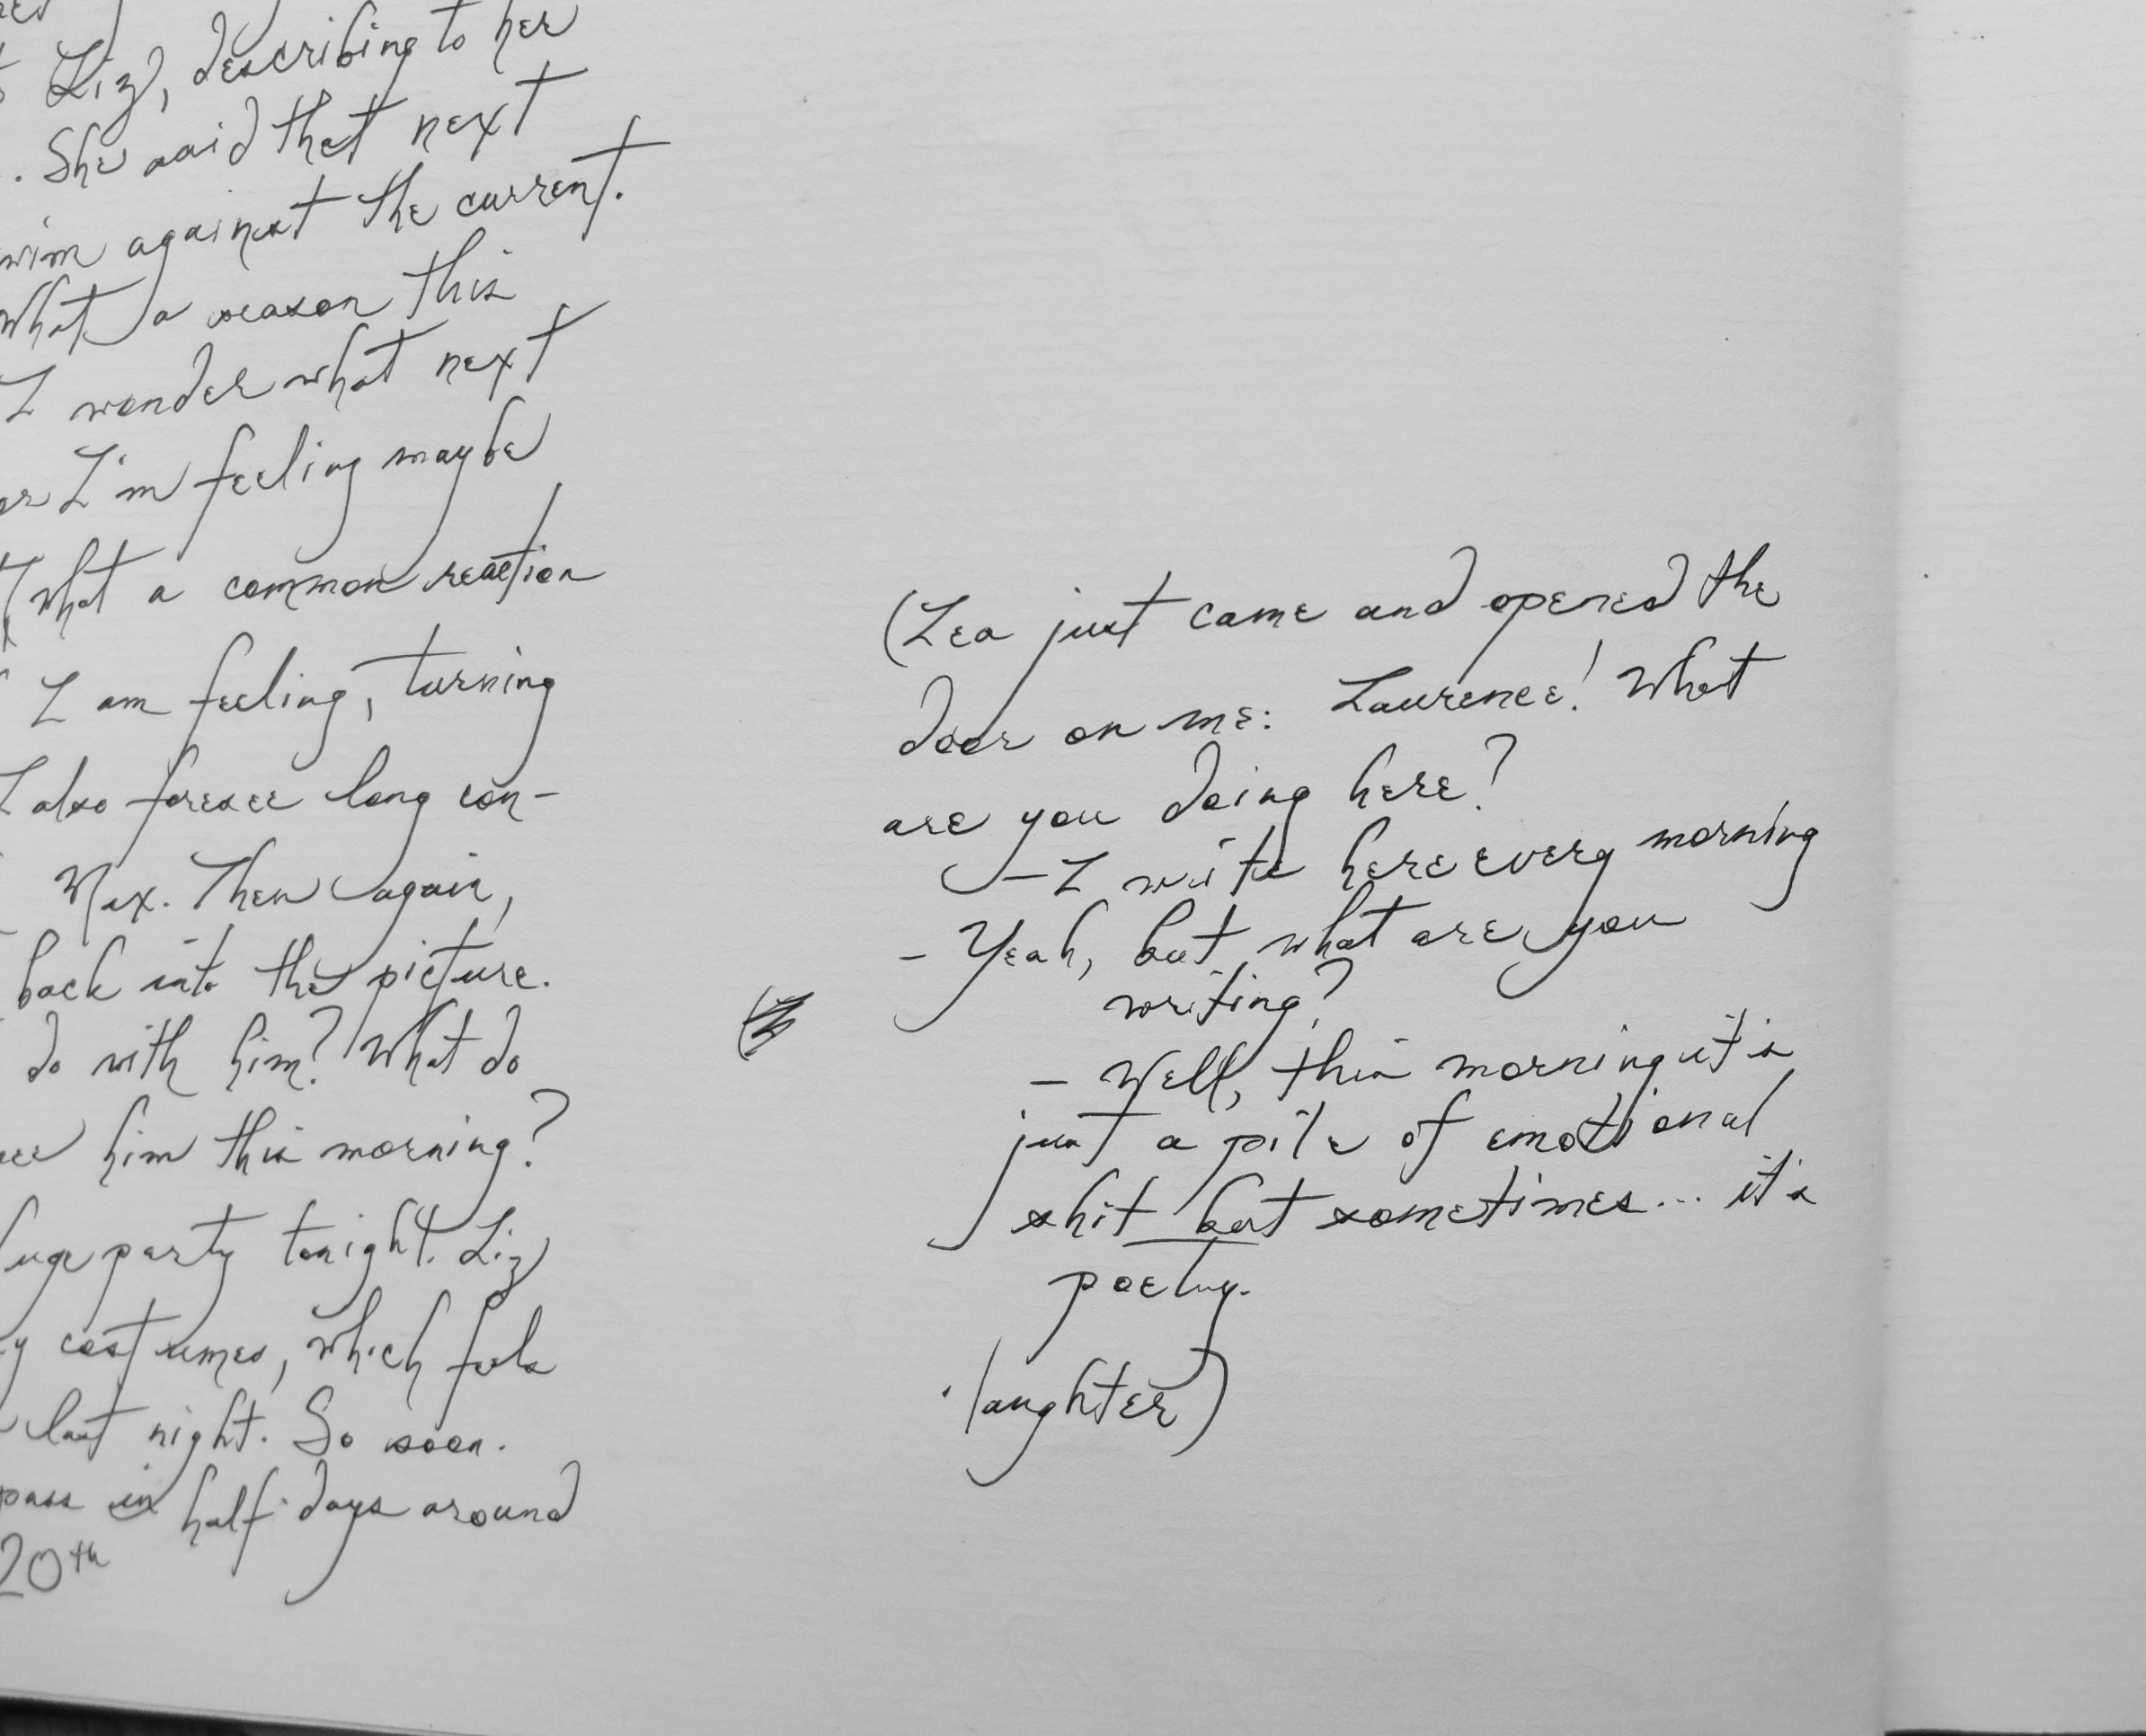 Liz, describing to her
. She said that next
against the current.
What a season this
I wonder what next
or I'm feeling maybe
(what a common reaction
I am feeling, turning
I also foresee long con-
Max. Then again,
back into the picture.
do with him? What do
him this morning?
party tonight. Liz
costumes, which feels
last night. So soon.
pass in half-days around
20th
(Lea just came and opened the
door on me: Laurence! What
are you doing here?
- I write here every morning
- Yeah, but what are you
writing?
- Well, this morning it's
just a pile of emotional
shit but sometimes... it's
poetry.
laughter)